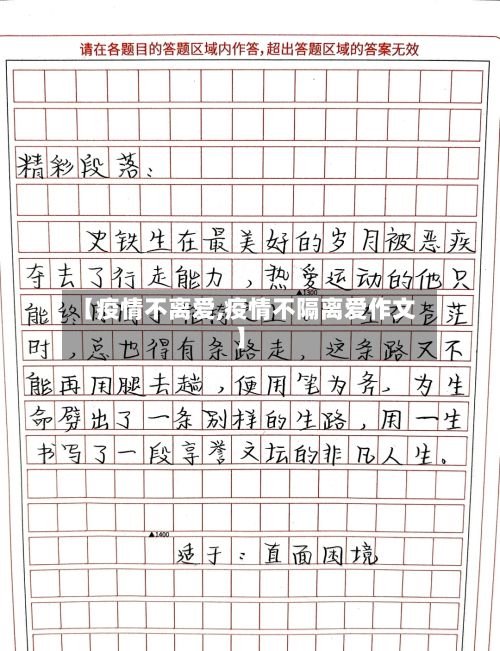 请在各题目的答题区域内作答，超出答题区域的答案无效
精彩段落：
史铁生在最美好的岁月被恶疾
夺去了行走能力，热爱运动的他只
▲1300
能终
茫
【疫情不离爱,疫情不隔离爱作文
】
时，总也得有条路走，这条路又不
能再用腿去趟，便用笔为务，为生
命劈出了一条别样的生路，用一生
书写了一段享誉文坛的非凡人生。
▲1400
适于：直面困境